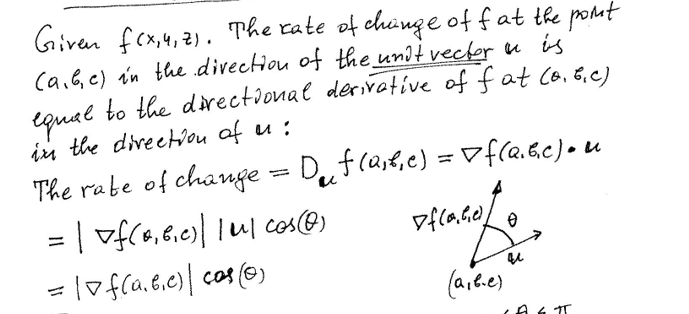 Given f(x,y,z). The rate of change of f at the point
(a,b,c) in the direction of the unit vector u is
equal to the directional derivative of f at (a,b,c)
in the direction of u :
The rate of change = D_u f(a,b,c) = ∇f(a,b,c) • u
= |∇f(a,b,c)| |u| cos(θ)
= |∇f(a,b,c)| cos(θ)
∇f(a,b,c)
θ
u
(a,b,c)